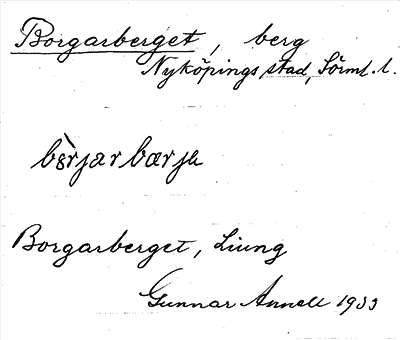 Borgarberget, berg
Nyköpings stad, Sörml. l.
Borgarberget, Ljung
Gunnar Annell 1933